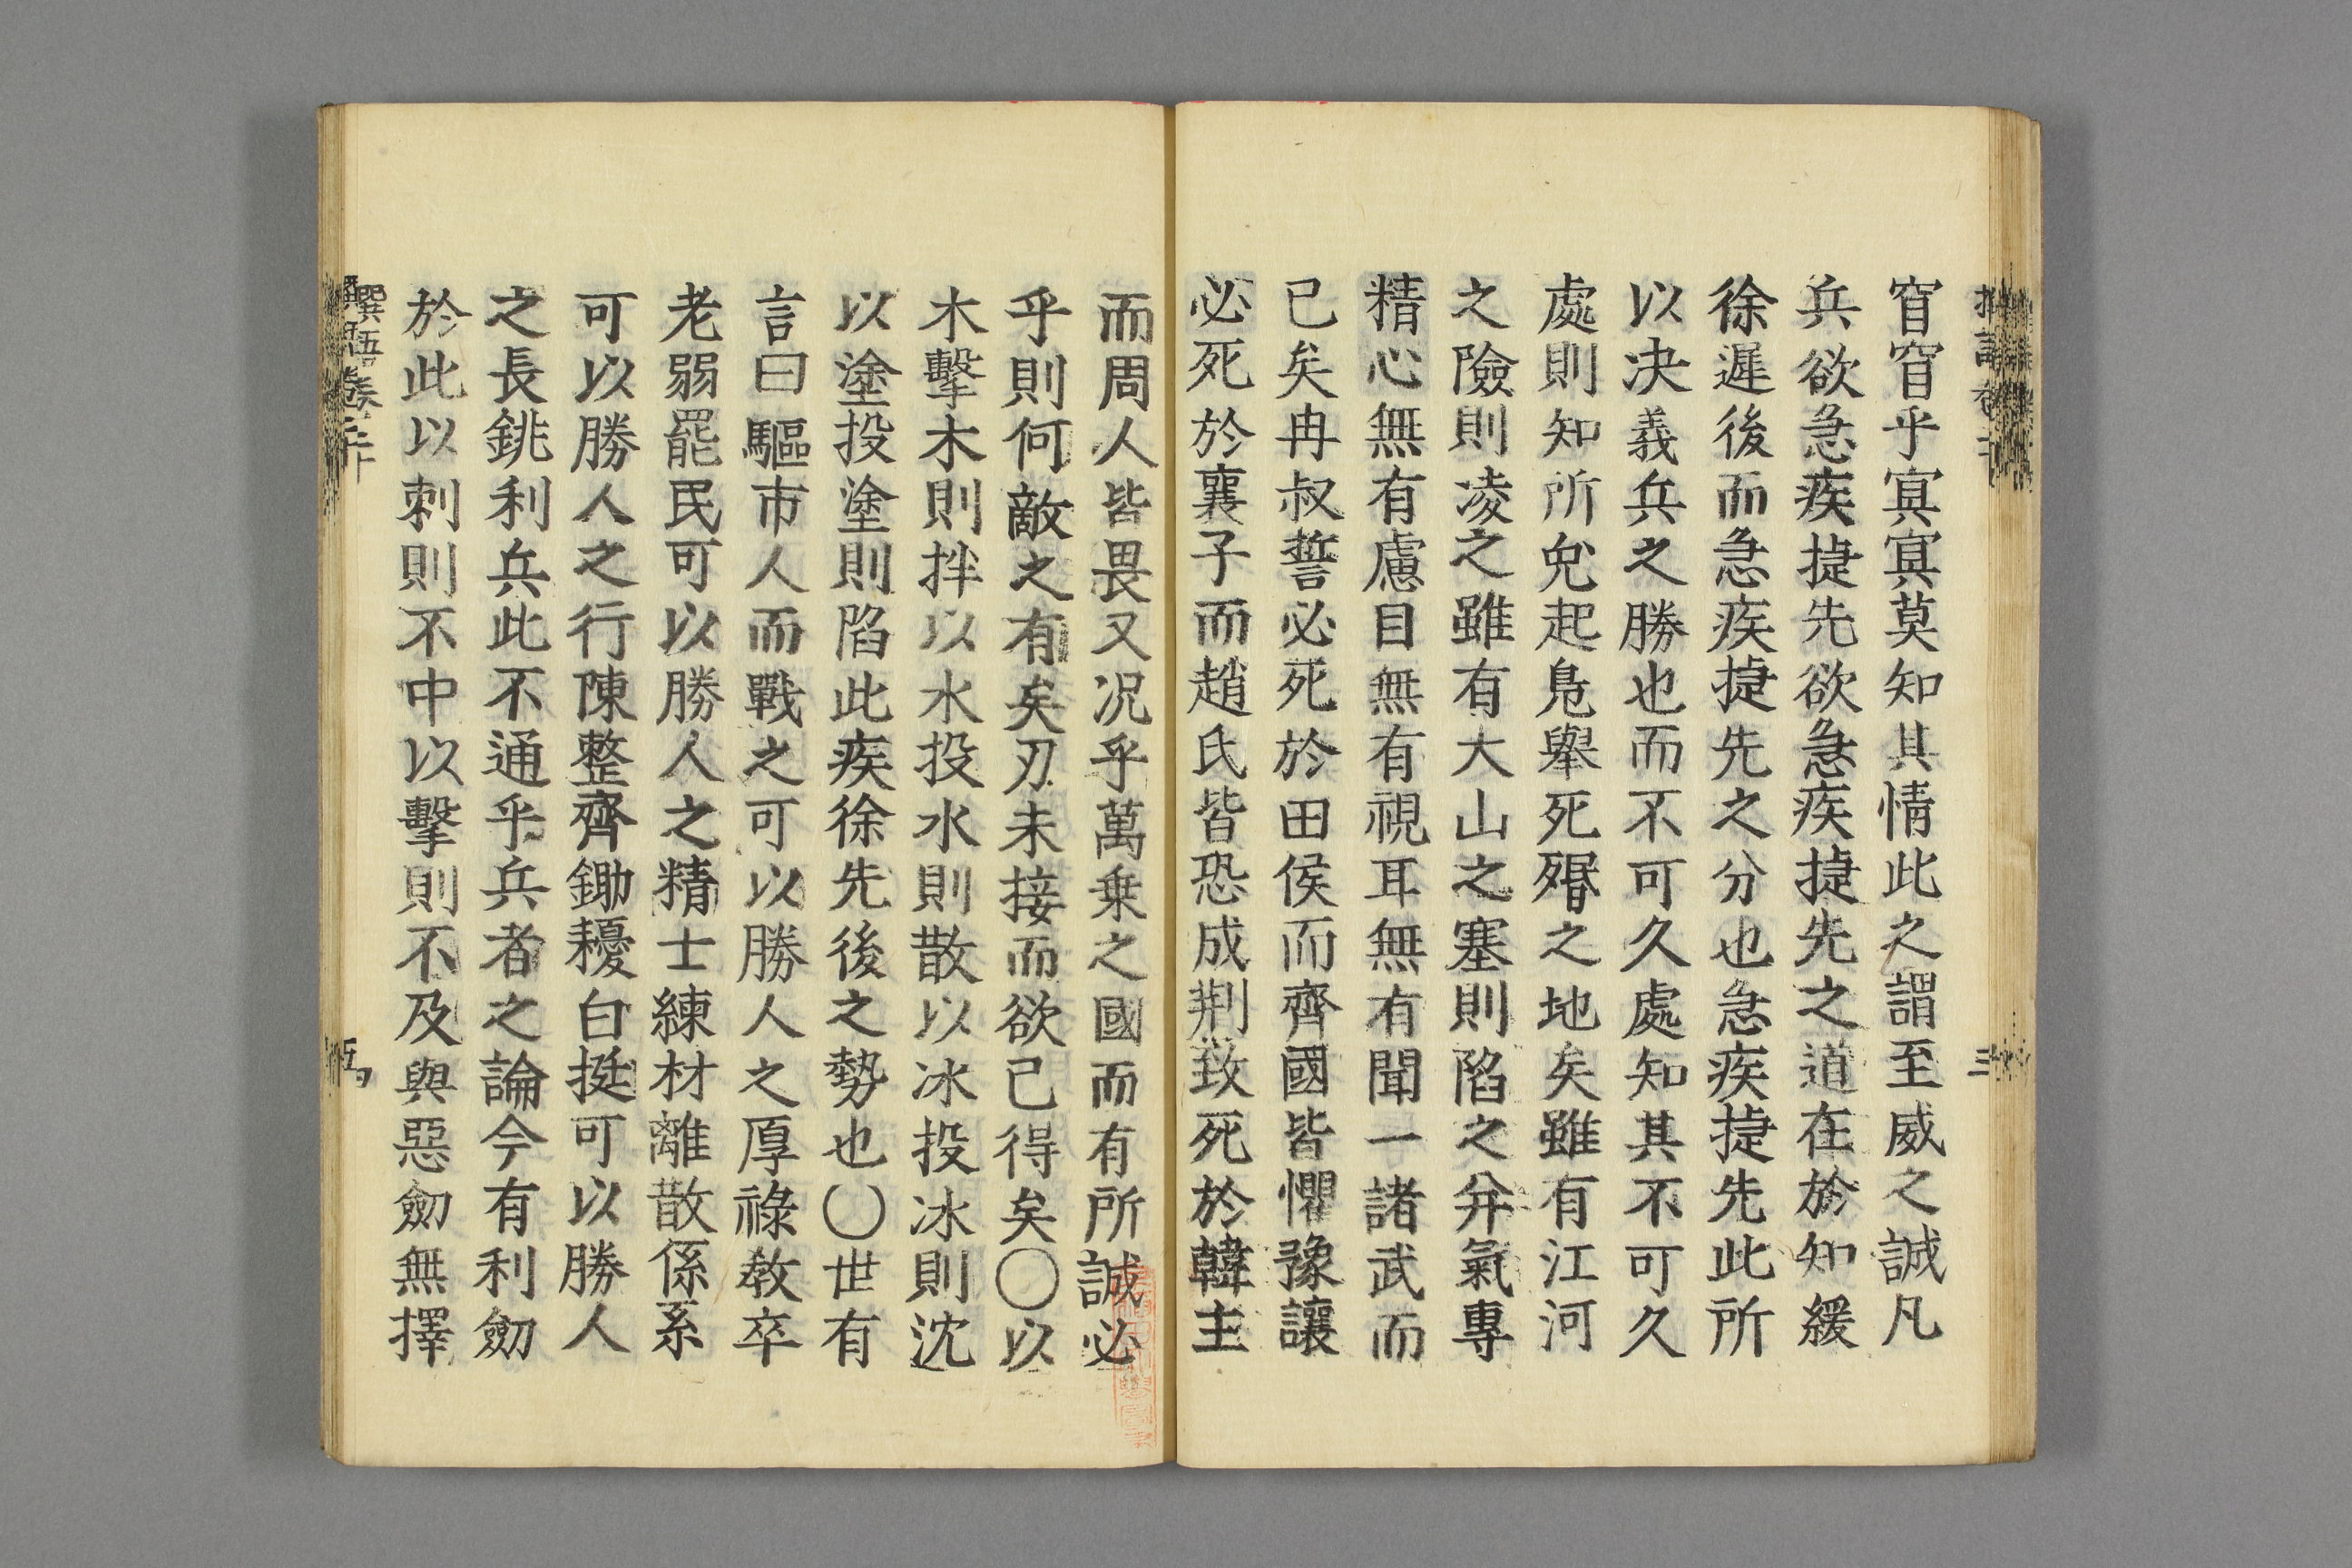 窅窅乎冥冥莫知其情此之謂至威之誠凡
兵欲急疾捷先欲急疾捷先之道在於知緩
徐遲後而急疾捷先之分也急疾捷先此所
以决義兵之勝也而不可久處知其不可久
處則知所兊起鳬舉死殙之地矣雖有江河
之險則凌之雖有大山之塞則陷之并氣專
精心無有慮目無有視耳無有聞一諸武而
已矣冉叔誓必死於田侯而齊國皆懼豫讓
必死於襄子而趙氏皆恐成荆致死於韓主
而周人皆畏又况乎萬乗之國而有所誠必
乎則何敵之有矣刃未接而欲已得矣〇以
木擊木則拌以水投水則散以冰投冰則沈
以塗投塗則陷此疾徐先後之勢也〇世有
言曰驅市人而戰之可以勝人之厚祿教卒
老弱罷民可以勝人之精士練材離散係系
可以勝人之行陳整齊鋤耰白挺可以勝人
之長銚利兵此不通乎兵者之論今有利劒
於此以刺則不中以擊則不及與惡劒無擇